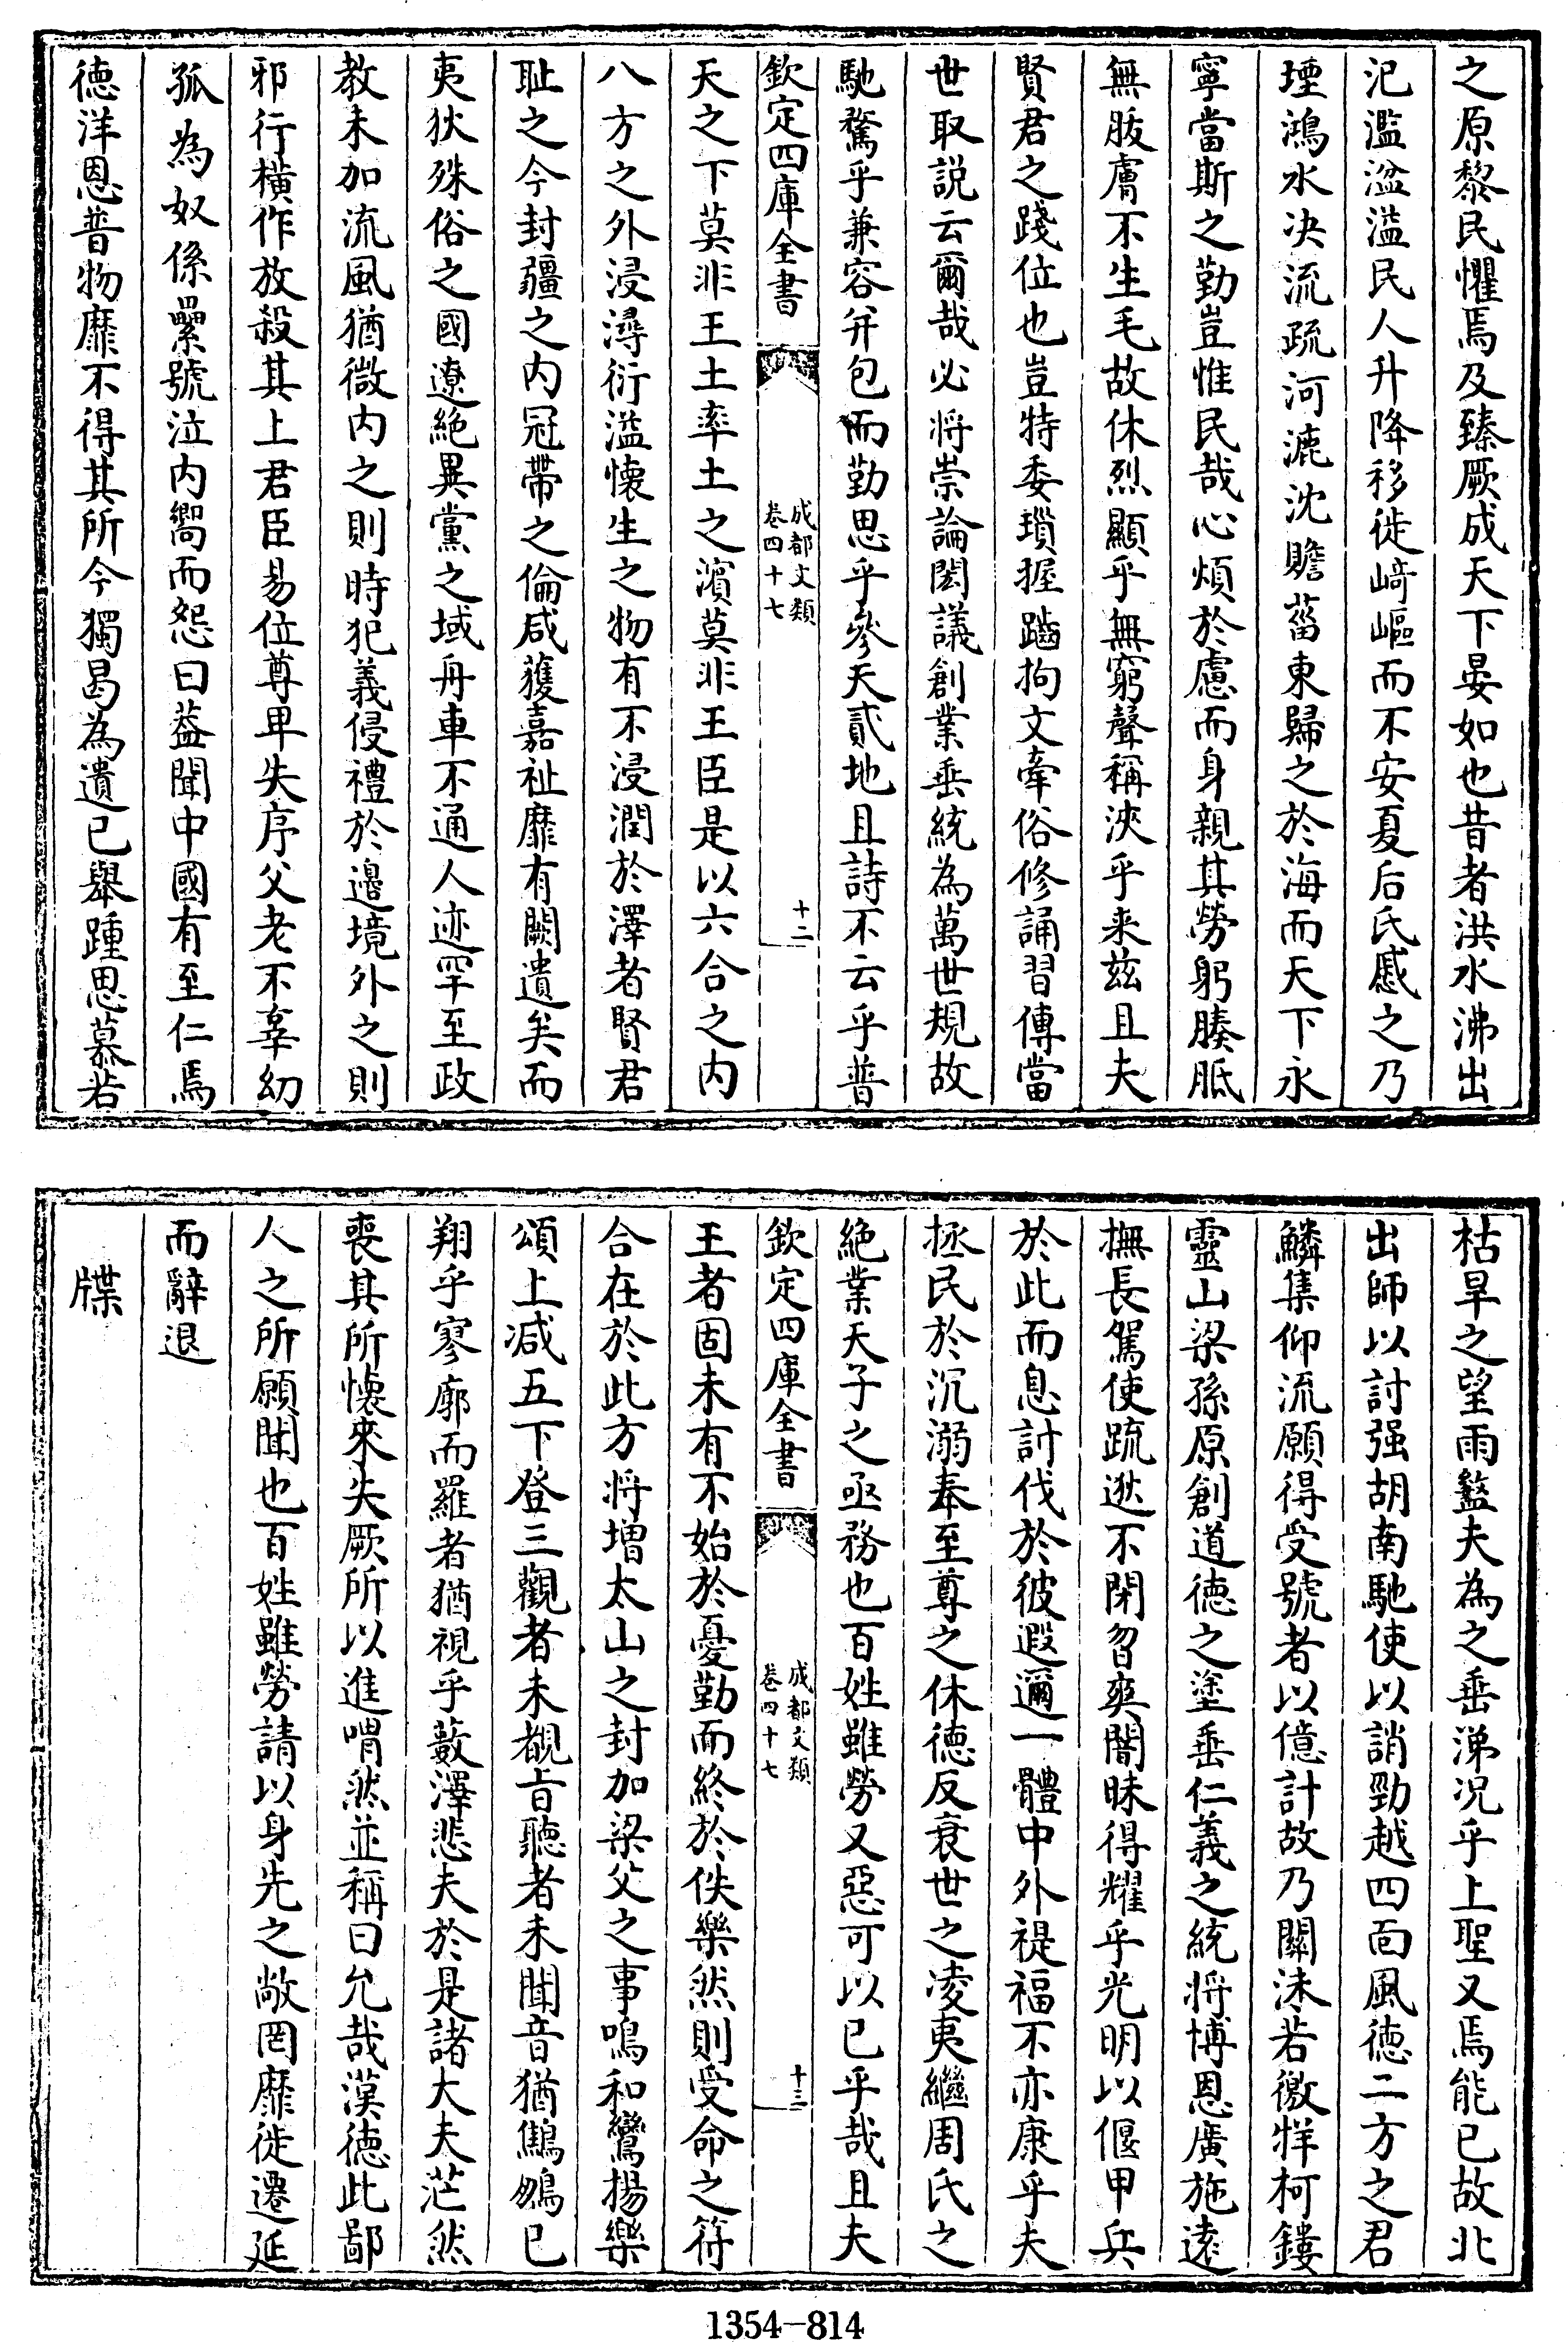 之原黎民懼焉及臻厥成天下晏如也昔者洪水沸出
汜濫湓溢民人升降移徙﨑嶇而不安夏后氏慼之乃
堙鴻水决流疏河漉沈贍菑東歸之於海而天下永
寧當斯之勤豈惟民哉心煩於慮而身親其勞躬腠胝
無胈膚不生毛故休烈顯乎無窮聲稱浹乎来兹且夫
賢君之踐位也豈特委瑣握䠱拘文牽俗修誦習傳當
世取説云爾哉必將崇論閎議創業垂統為萬世規故
馳騖乎兼容并包而勤思乎參天貳地且詩不云乎普
欽定四庫全書
成都文類
卷四十七
十二
天之下莫非王土率土之濱莫非王臣是以六合之内
八方之外浸潯衍溢懐生之物有不浸潤於澤者賢君
耻之今封疆之内冠帶之倫咸獲嘉祉靡有闕遺矣而
夷狄殊俗之國遼絶異黨之域舟車不通人迹罕至政
教未加流風猶微内之則時犯義侵禮於邊境外之則
邪行横作放殺其上君臣易位尊卑失序父老不辜幼
孤為奴係纍號泣内嚮而怨曰葢聞中國有至仁焉
德洋恩普物靡不得其所今獨曷為遺已舉踵思慕若
枯旱之望雨盭夫為之垂涕况乎上聖又焉能已故北
出師以討强胡南馳使以誚勁越四面風德二方之君
鱗集仰流願得受號者以億計故乃關沬若徼牂柯鏤
靈山梁孫原創道德之塗垂仁義之統將博恩廣施遠
撫長駕使疏逖不閉曶爽闇昧得耀乎光明以偃甲兵
於此而息討伐於彼遐邇一體中外禔福不亦康乎夫
拯民於沉溺奉至尊之休德反衰世之凌夷繼周氏之
絶業天子之亟務也百姓雖勞又惡可以已乎哉且夫
欽定四庫全書
成都文類
卷四十七
十三
王者固未有不始於憂勤而終於佚樂然則受命之符
合在於此方將增太山之封加梁父之事鳴和鸞揚樂
頌上减五下登三觀者未覩旨聽者未聞音猶鷦鵬已
翔乎寥廓而羅者猶視乎藪澤悲夫於是諸大夫茫然
喪其所懐來失厥所以進喟然並稱曰允哉漢德此鄙
人之所願聞也百姓雖勞請以身先之敞罔靡徙遷延
而辭退
牒
1354-814